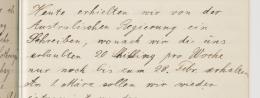 Heute erhielten wir von der
Australischen Regierung ein
Schreiben, wonach wir die uns
erlaubten 20 Shilling pro Woche
nur noch bis zum 28. Febr. erhalten.
Am 1. März sollen wir wieder